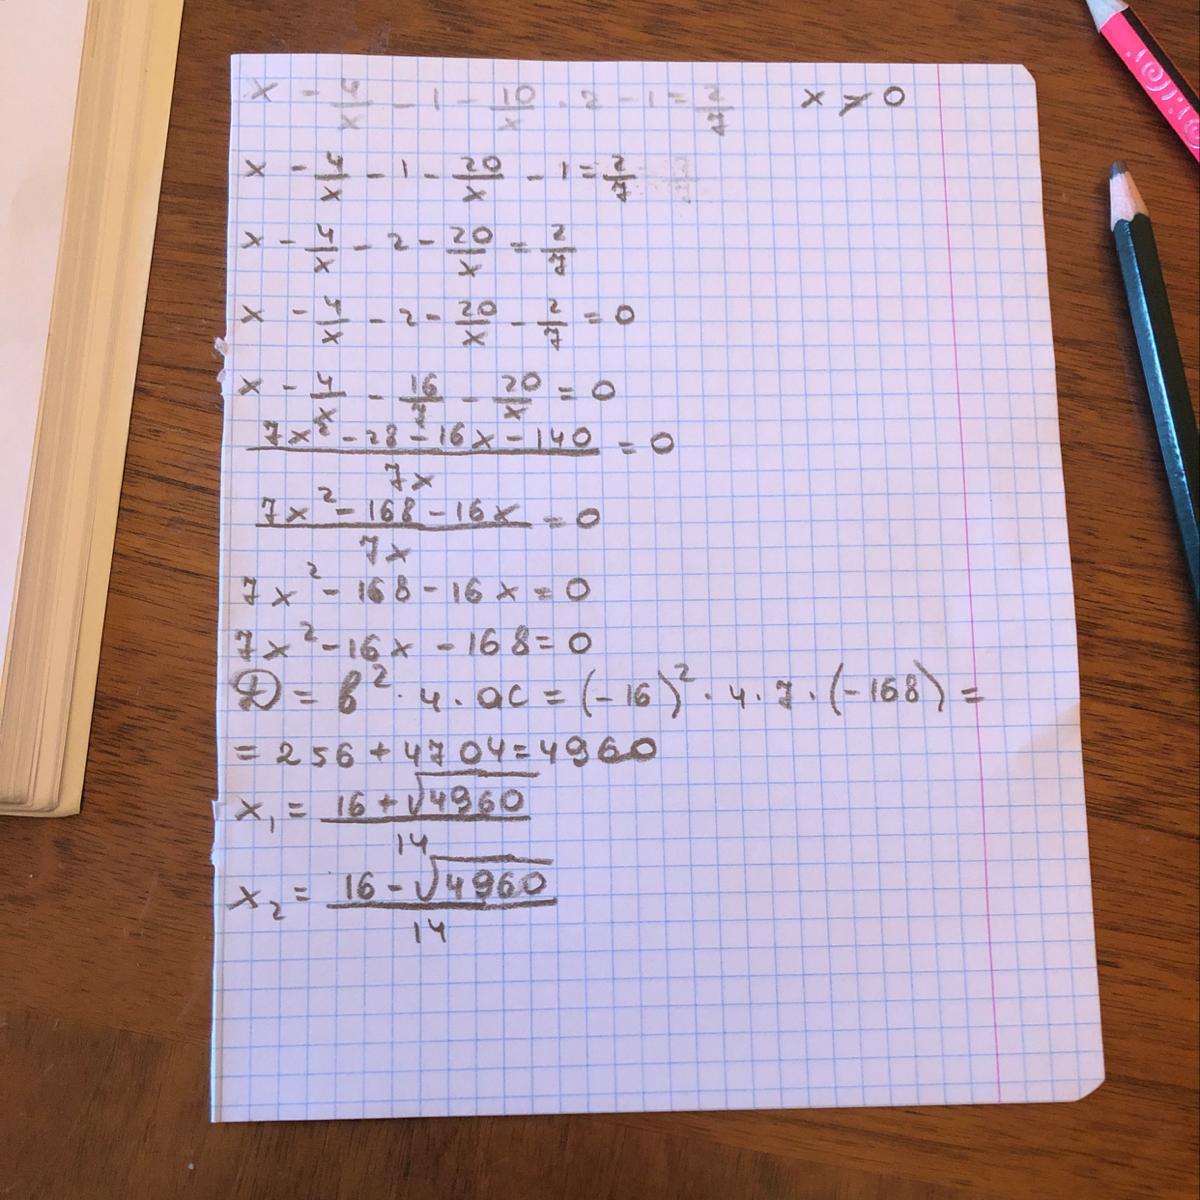 x - 4/x - 1 - 10/x · 2 - 1 = 2/7 x > 0
x - 4/x - 1 - 20/x - 1 = 2/7
x - 4/x - 2 - 20/x = 2/7
x - 4/x - 2 - 20/x - 2/7 = 0
x - 4/x - 16/7 - 20/x = 0
(7x² - 28 - 16x - 140)/(7x) = 0
(7x² - 168 - 16x)/(7x) = 0
7x² - 168 - 16x = 0
7x² - 16x - 168 = 0
D = b² · 4 · ac = (-16)² · 4 · 7 · (-168) =
= 256 + 4704 = 4960
x₁ = (16 + √4960)/14
x₂ = (16 - √4960)/14